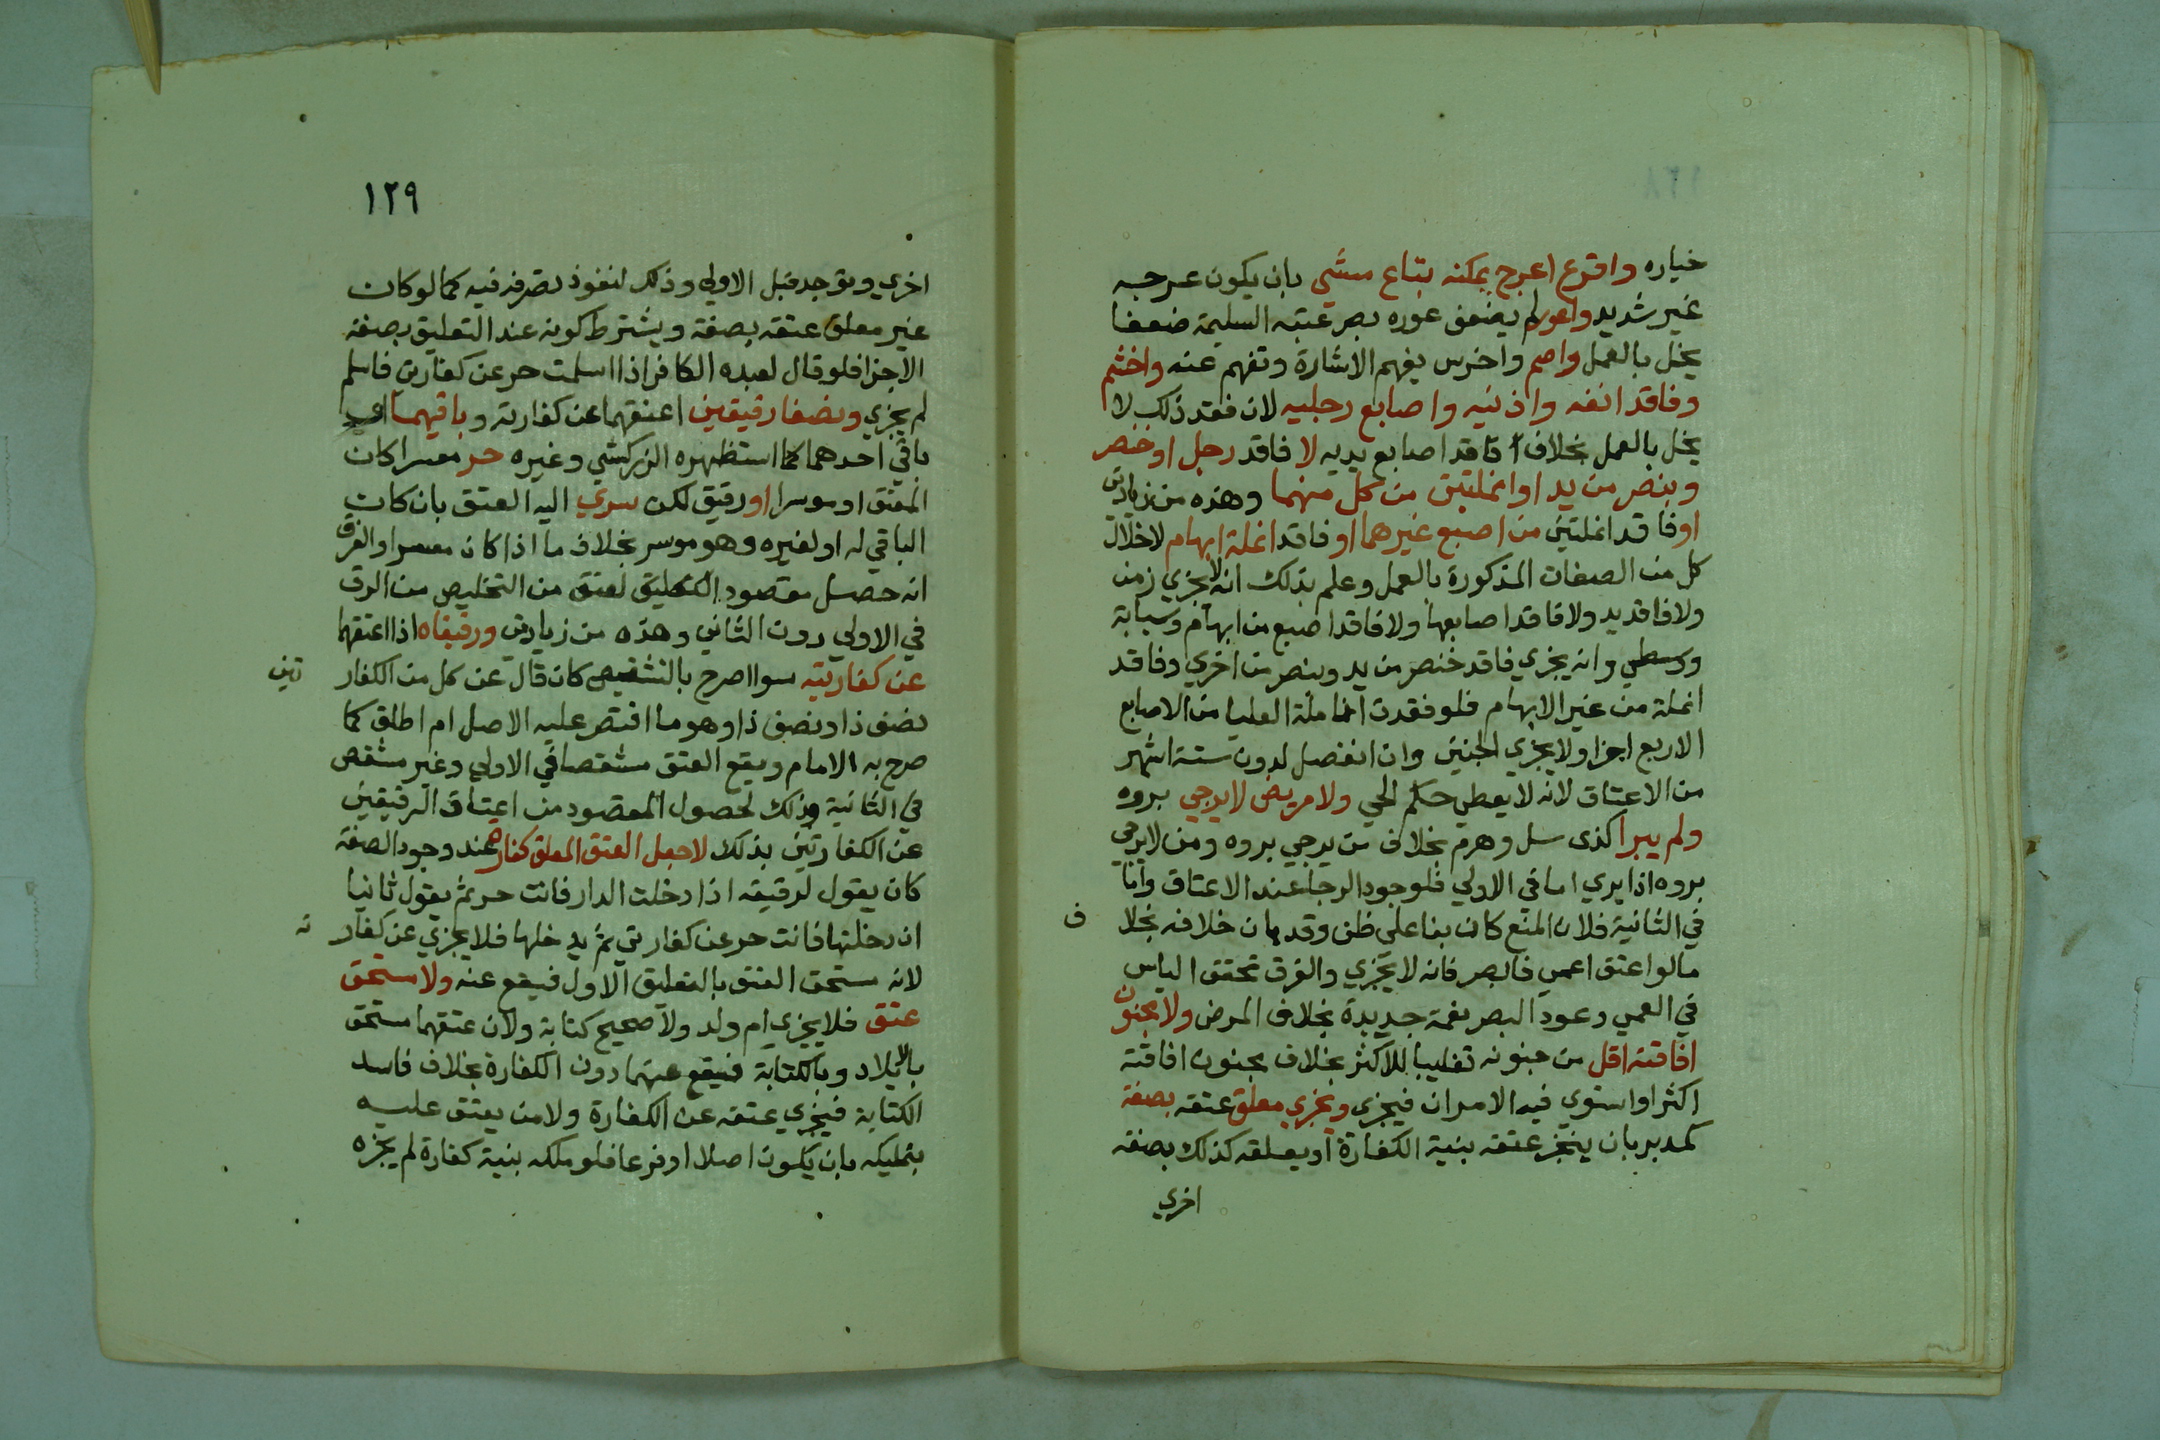 خياره واقرع اعرج يمكنه تباع مشي بان يكون عرجه
غير شديد واعور لم يضعف عوره بصر عينه السليمة ضعفا
يخل بالعمل واصم واخرس يفهم الاشارة وتفهم عنه واخشم
وفاقد انفه واذنيه واصابع رجليه لان فقد ذلك لا
يخل بالعمل بخلاف فاقد اصابع يديه لا فاقد رجل او خنصر
وبنصر من يد او انملتين من كل منهما وهذه من زيادتي
او فاقد انملتين من اصبع غيرهما او فاقد انملة ابهام لاخلال
كل من الصفات المذكورة بالعمل وعلم بذلك انه لا يجزي زمن
ولا فاقد يد ولا فاقد اصابعها ولا فاقد اصبع من ابهام وسبابة
ووسطي وانه يجزي فاقد خنصر من يد وبنصر من اخري وفاقد
انملة من غير الابهام فلو فقدت انامله العليا من الاصابع
الاربع اجزا ولا يجزي الجنين وان انفصل لدون ستة اشهر
من الاعتاق لانه لا يعطي حكم الحي ولا مريض لا يرجي بروه
ولم يبرا كذي سل وهرم بخلاف من يرجي بروه ومن لا يرجي
بروه اذا بري اما في الاولي فلوجود الرجا عند الاعتاق واما
في الثانية فلان المنع كان بنا علي ظن وقد بان خلافه بخلا ف
ما لو اعتق اعمي فابصر فانه لا يجزي والفرق تحقق الياس
في العمي وعود البصر نعمة جديدة بخلاف المرض ولا مجنون
افاقته اقل من جنونه تغليبا للاكثر بخلاف مجنون افاقته
اكثر او استوي فيه الامران فيجزي ويجزي معلق عتقه بصفة
كمدبر بان ينجز عتقه بنية الكفارة او يعلقه كذلك بصفة
اخري
١٢٩
اخري وتوجد قبل الاولي وذلك لنفوذ تصرفه فيه كما لو كان
غير معلق عتقه بصفة ويشترط كونه عند التعليق بصفة
الاجزا فلو قال لعبده الكافر اذا اسلمت حر عن كفارتي فاسلم
لم يجزي ونصفا رقيقين اعتقهما عن كفارته وباقيهما او
باقي احدهما كما استظهره الزركشي وغيره حر معسرا كان
المعتق او موسرا او رقيق لكن سري اليه العتق بان كان
الباقي له او لغيره وهو موسر بخلاف ما اذا كان معسرا والفرق
انه حصل مقصود العتق من التخليص من الرق
في الاولي دون الثاني وهذه من زيادتي ورقيقاه اذا اعتقهما
عن كفارتيه سوا صرح بالتشقيص كان قال عن كل من الكفار تين
نصف ذا ونصف ذا وهو ما اقتصر عليه الاصل ام اطلق كما
صرح به الامام ويقع العتق مشقصا في الاولي وغير مشقص
في الثانية وذلك لحصول المقصود من اعتاق الرقيقين
عن الكفارتين بذلك لا جعل العتق المعلق كفارة عند وجود الصفة
كان يقول لرقيقه اذا دخلت الدار فانت حر ثم يقول ثانيا
ان دخلتها فانت حر عن كفارتي ثم يدخلها فلا يجزي عن كفار ته
لانه مستحق العتق بالتعليق الاول فيقع عنه ولا مستحق
عتق فلا يجزي ام ولد ولا صحيح كتابة ولان عتقهما مستحق
بالايلاد وبالكتابة فيقع عنهما دون الكفارة بخلاف فاسد
الكتابة فيجزي عتقه عن الكفارة ولا من يعتق عليه
بتمليكه بان يكون اصلا او فرعا فلو ملكه بنية كفارة لم يجزه